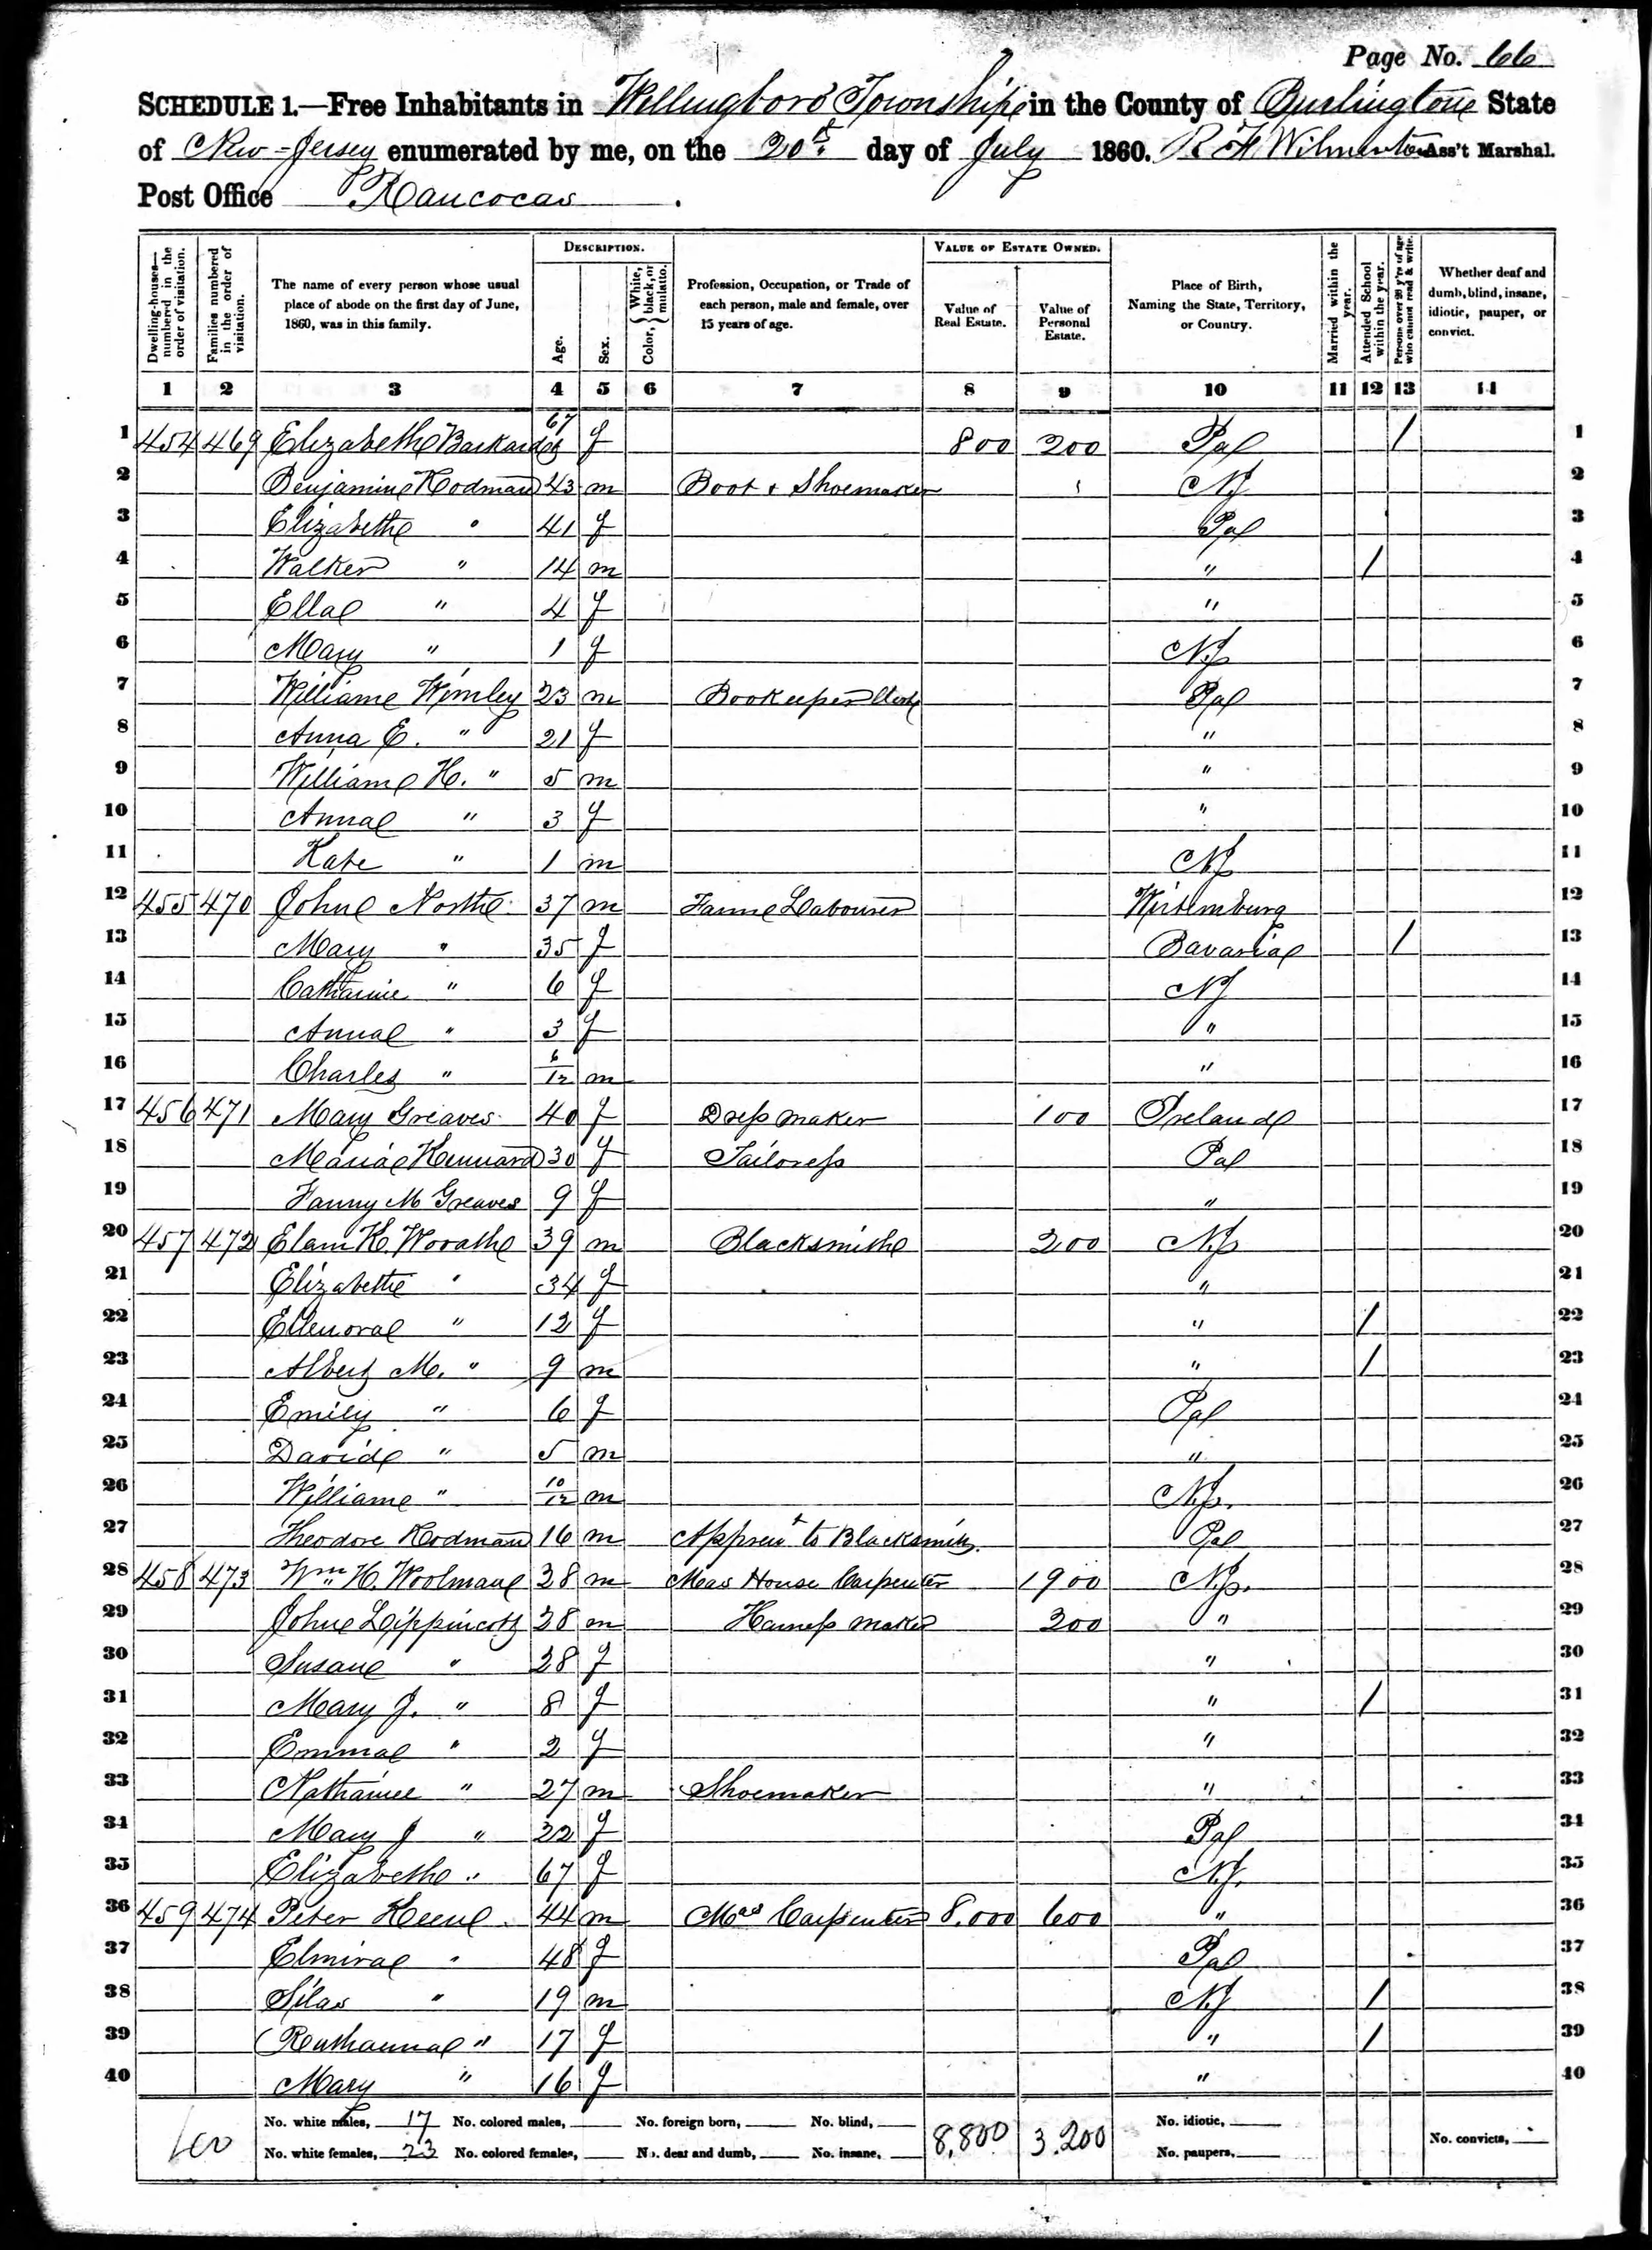 Page No. 66
SCHEDULE 1.—Free Inhabitants in Willingboro Township in the County of Burlington State
of New-Jersey enumerated by me, on the 20th day of July 1860. R F Wilmerton Ass't Marshal.
Post Office Rancocas.
DESCRIPTION. VALUE OF ESTATE OWNED.
Dwelling-houses—numbered in the order of visitation. Families numbered in the order of visitation. The name of every person whose usual place of abode on the first day of June, 1860, was in this family. Age. Sex. Color, { White, black, or mulatto. Profession, Occupation, or Trade of each person, male and female, over 15 years of age. Value of Real Estate. Value of Personal Estate. Place of Birth, Naming the State, Territory, or Country. Married within the year. Attended School within the year. Persons over 20 y'rs of age who cannot read & write. Whether deaf and dumb, blind, insane, idiotic, pauper, or convict.
1 2 3 4 5 6 7 8 9 10 11 12 13 14
1 454 469 Elizabeth 67 f 800 200 Pa / 1
2 Benjamin Rodman 43 m Boot & Shoemaker NJ 2
3 Elizabeth " 41 f Pa 3
4 Walker " 14 m " / 4
5 Ella " 4 f " 5
6 Mary " 1 f NJ 6
7 William Wimley 23 m Bookeeper Clerk Pa 7
8 Anna E. " 21 f " 8
9 William H. " 5 m " 9
10 Anna " 3 f " 10
11 Kate " 1 m NJ 11
12 455 470 John North 37 m Farm Labourer Wirtemburg 12
13 Mary " 35 f Bavaria / 13
14 Catharine " 6 f NJ 14
15 Anna " 3 f " 15
16 Charles " 6/12 m " 16
17 456 471 Mary Greaves 40 f Dress maker 100 Ireland 17
18 Maria Kennard 30 f Tailoress Pa 18
19 Fanny M Greaves 9 f " 19
20 457 472 Elam H. Worath 39 m Blacksmith 200 NJ 20
21 Elizabeth " 34 f " 21
22 Ellenora " 12 f " / 22
23 Albert M. " 9 m " / 23
24 Emily " 6 f Pa 24
25 David " 5 m " 25
26 William " 10/12 m N.J. 26
27 Theodore Rodman 16 m Apprent to Blacksmith Pa 27
28 458 473 Wm H. Woolman 38 m Mas House Carpenter 1900 N.J. 28
29 John Lippincott 28 m Harness maker 200 " 29
30 Susan " 28 f " 30
31 Mary J. " 8 f " / 31
32 Emma " 2 f " 32
33 Nathanie " 27 m Shoemaker " 33
34 Mary J " 22 f Pa 34
35 Elizabeth " 67 f N.J. 35
36 459 474 Peter Keen 44 m Mas Carpenter 8,000 600 " 36
37 Elmira " 48 f Pa 37
38 Silas " 19 m NJ / 38
39 Ruthanna " 17 f " / 39
40 Mary " 16 f " 40
No. white males, 17 No. colored males, No. foreign born, No. blind, 8,800 3,200 No. idiotic,
No. white females, 23 No. colored females, No. deaf and dumb, No. insane, No. paupers, No. convicts,